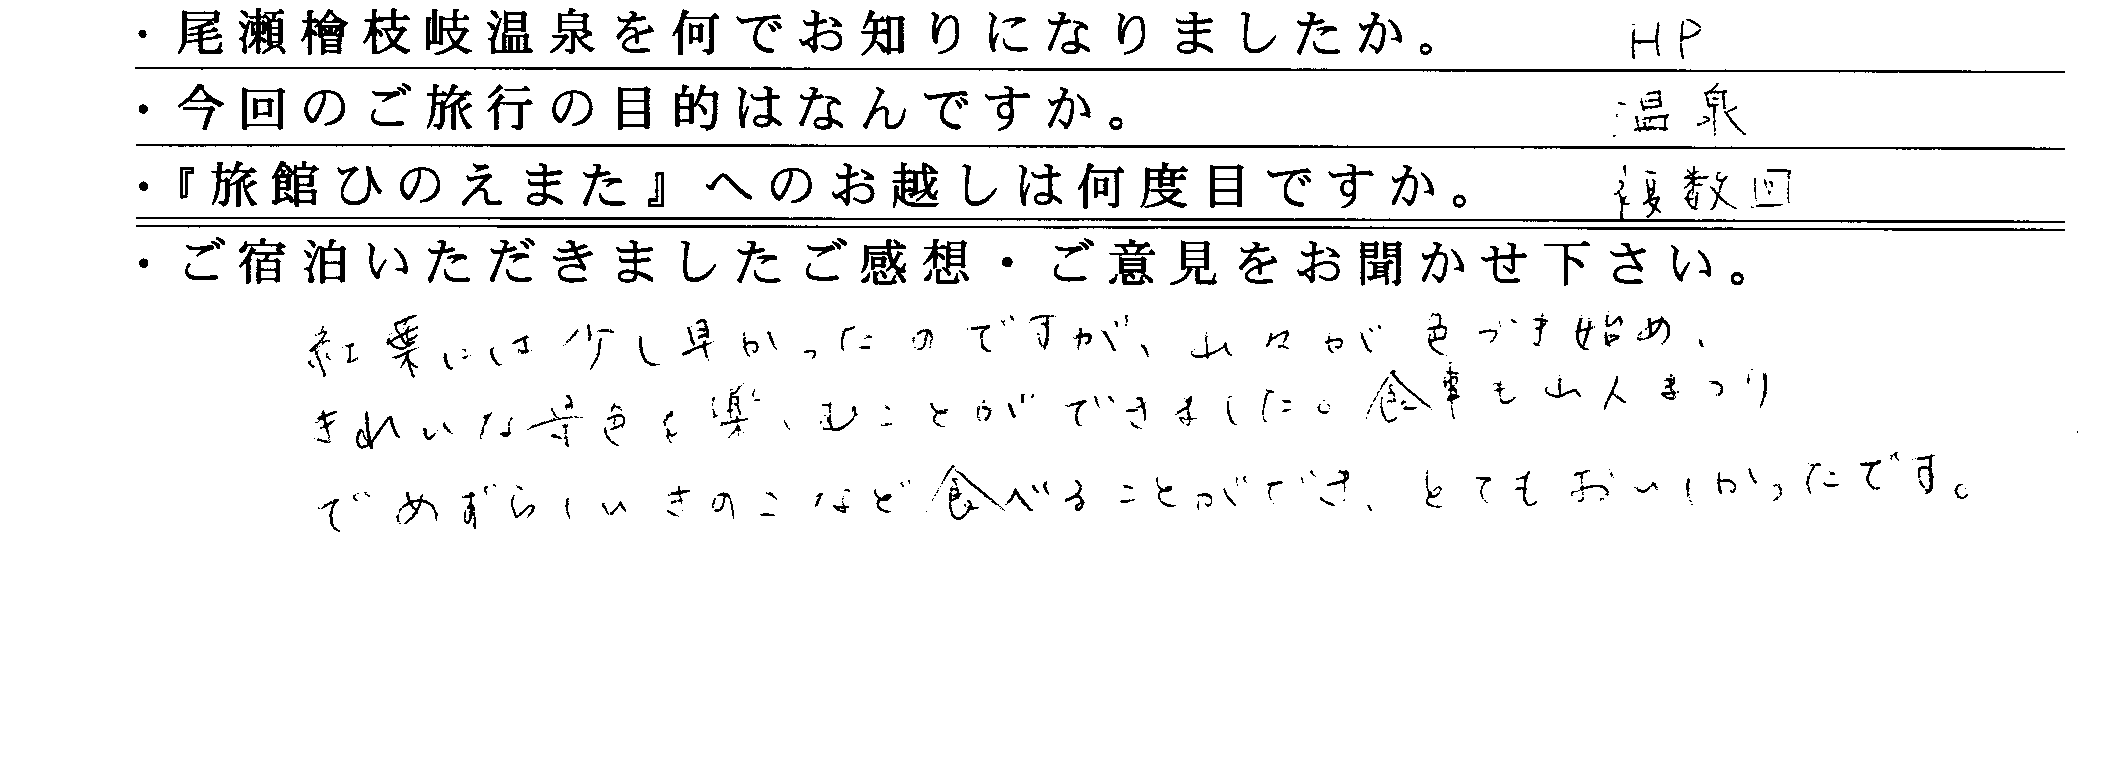 ・尾瀬檜枝岐温泉を何でお知りになりましたか。 HP
・今回のご旅行の目的はなんですか。 温泉
・『旅館ひのえまた』へのお越しは何度目ですか。 複数回
・ご宿泊いただきましたご感想・ご意見をお聞かせ下さい。
紅葉には少し早かったのですが、山々が色づき始め、
きれいな景色を楽しむことができました。食事も山人まつり
でめずらしいきのこなど食べることができ、とてもおいしかったです。